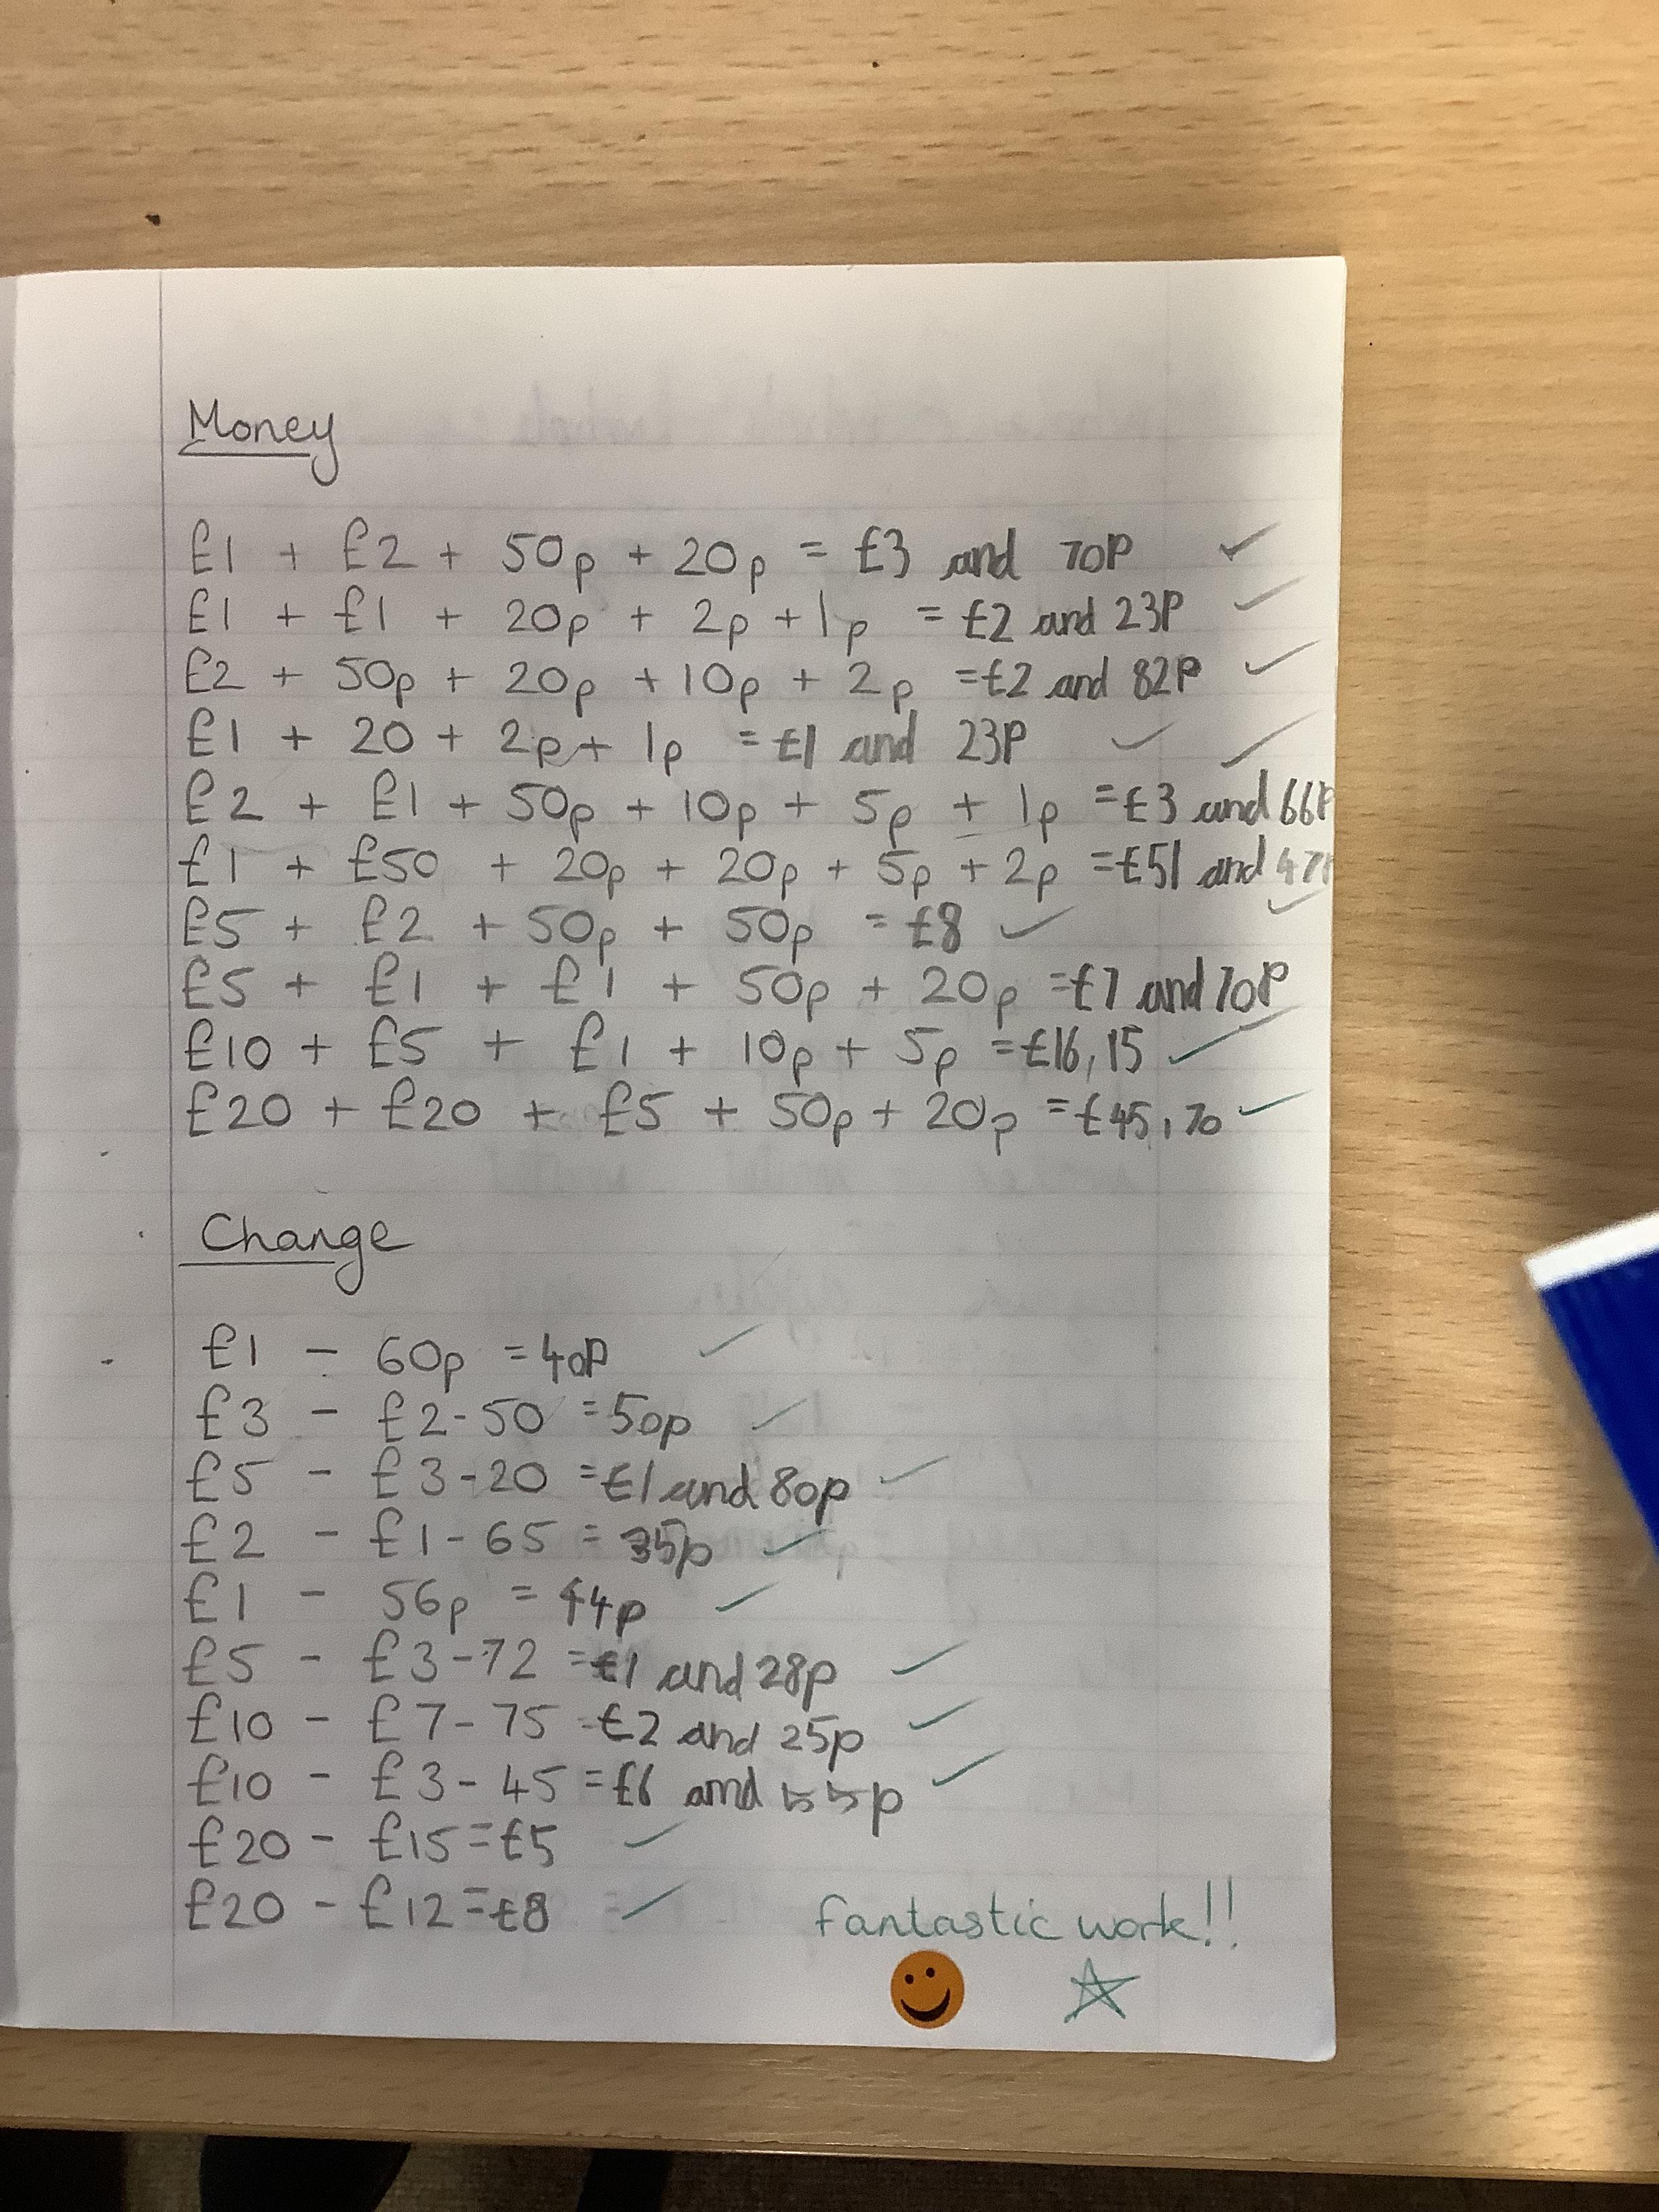 Money
£1 + £2 + 50p + 20p = £3 and 70P
£1 + £1 + 20p + 2p + 1p = £2 and 23P
£2 + 50p + 20p + 10p + 2p = £2 and 82P
£1 + 20 + 2p + 1p = £1 and 23P
£2 + £1 + 50p + 10p + 5p + 1p = £3 and 66P
£1 + £50 + 20p + 20p + 5p + 2p = £51 and 47P
£5 + £2 + 50p + 50p = £8
£5 + £1 + £1 + 50p + 20p = £7 and 70P
£10 + £5 + £1 + 10p + 5p = £16,15
£20 + £20 + £5 + 50p + 20p = £45,70
Change
£1 - 60p = 40P
£3 - £2-50 = 50p
£5 - £3-20 = £1 and 80p
£2 - £1-65 = 35p
£1 - 56p = 44p
£5 - £3-72 = £1 and 28p
£10 - £7-75 = £2 and 25p
£10 - £3-45 = £6 and 55p
£20 - £15 = £5
£20 - £12 = £8
fantastic work!!